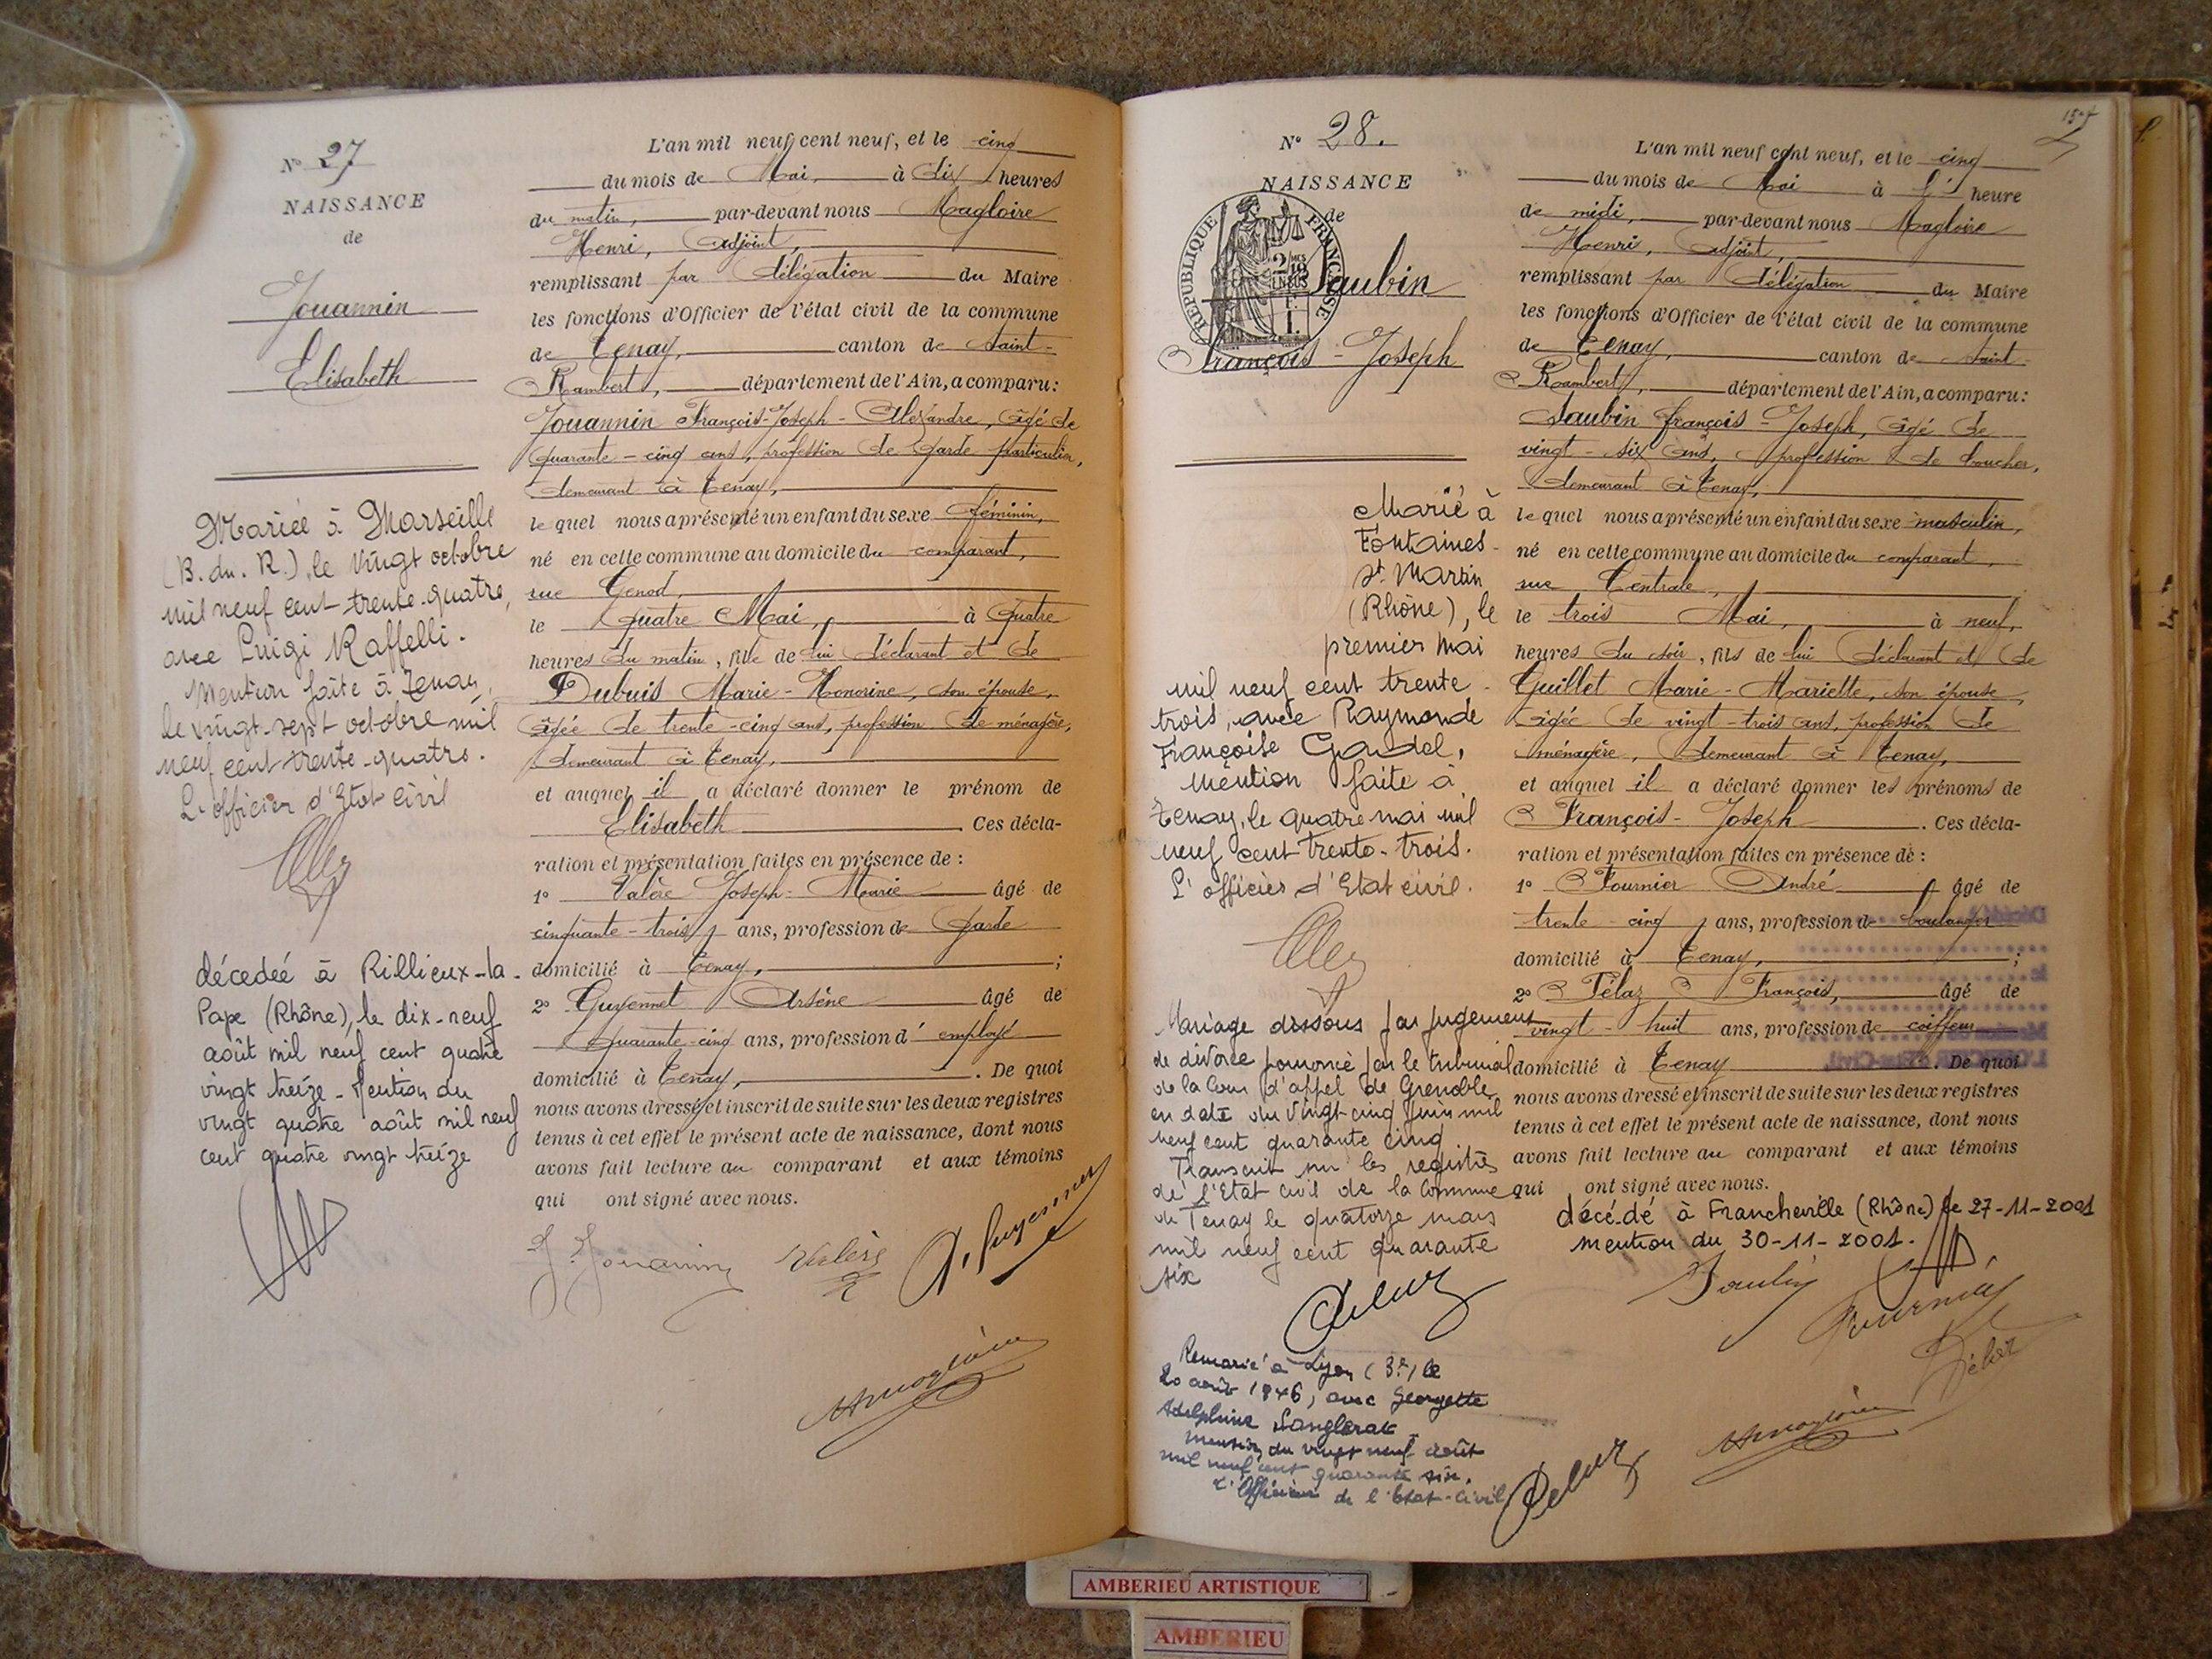 N° 27
NAISSANCE
de
Jouannin
Elisabeth
Mariée à Marseille
(B. du. R.), le vingt octobre
mil neuf cent trente-quatre,
avec Luigi Raffelli.
Mention faite à Tenay,
le vingt-sept octobre mil
neuf cent trente-quatre.
L'officier d'Etat civil
décedeé à Rillieux-la-
Pape (Rhône), le dix-neuf
août mil neuf cent quatre
vingt treize - Mention du
vingt quatre août mil neuf
cent quatre vingt treize
L'an mil neuf cent neuf, et le cinq
du mois de Mai, à dix heures
du matin, par-devant nous Magloire
Henri, adjoint,
remplissant par délégation du Maire
les fonctions d'Officier de l'état civil de la commune
de Tenay, canton de Saint-
Rambert, département de l'Ain, a comparu:
Jouannin François-Joseph-Alexandre, âgé de
quarante-cinq ans, profession de garde particulier,
demeurant à Tenay,
le quel nous a présenté un enfant du sexe féminin,
né en cette commune au domicile du comparant,
rue Genod,
le quatre Mai, à quatre
heures du matin, fille de lui déclarant et de
Dubuis Marie-Honorine, son épouse,
âgée de trente-cinq ans, profession de ménagère,
demeurant à Tenay,
et auquel il a déclaré donner le prénom de
Elisabeth. Ces décla-
ration et présentation faites en présence de :
1° Valère Joseph-Marie âgé de
cinquante-trois ans, profession de garde
domicilié à Tenay, ;
2° Guyennet Arsène âgé de
quarante-cinq ans, profession d' employé
domicilié à Tenay, . De quoi
nous avons dressé et inscrit de suite sur les deux registres
tenus à cet effet le présent acte de naissance, dont nous
avons fait lecture au comparant et aux témoins
qui ont signé avec nous.
J. Jouannin Valère A. Guyennet
H Magloire
N° 28.
NAISSANCE
de
REPUBLIQUE FRANCAISE
Saubin
François-Joseph
Marié à
Fontaines-
St Martin
(Rhône), le
premier mai
mil neuf cent trente-
trois, avec Raymonde
Françoise Gardel,
mention faite à
Tenay, le quatre mai mil
neuf cent trente-trois.
L'officier d'Etat civil.
Mariage dissous par jugement
de divorce prononcé par le tribunal
de la Cour d'appel de Grenoble
en date du vingt cinq juin mil
neuf cent quarante cinq.
Transcrit sur les registres
de l'Etat civil de la Commune
de Tenay le quatorze mars
mil neuf cent quarante
six
Remarié à Lyon (3e) le
20 août 1946, avec Georgette
Adelphine
Mention du vingt neuf août
mil neuf cent quarante six.
L'Officier de l'Etat-Civil
157
L'an mil neuf cent neuf, et le cinq
du mois de Mai à l' heure
de midi, par-devant nous Magloire
Henri, adjoint,
remplissant par délégation du Maire
les fonctions d'Officier de l'état civil de la commune
de Tenay, canton de Saint-
Rambert, département de l'Ain, a comparu:
Saubin François-Joseph, âgé de
vingt-six ans, profession de boucher,
demeurant à Tenay,
le quel nous a présenté un enfant du sexe masculin,
né en cette commune au domicile du comparant,
rue Centrale,
le trois Mai, à neuf,
heures du soir, fils de lui déclarant et de
Guillet Marie-Mariette, son épouse,
âgée de vingt-trois ans, profession de
ménagère, demeurant à Tenay,
et auquel il a déclaré donner les prénoms de
François-Joseph. Ces décla-
ration et présentation faites en présence de :
1° Fournier André âgé de
trente-cinq ans, profession de boulanger
domicilié à Tenay, ;
2° Pélaz François, âgé de
vingt-huit ans, profession de coiffeur
domicilié à Tenay. De quoi
nous avons dressé et inscrit de suite sur les deux registres
tenus à cet effet le présent acte de naissance, dont nous
avons fait lecture au comparant et aux témoins
qui ont signé avec nous.
décédé à Francheville (Rhône) le 27-11-2001
mention du 30-11-2001.
Saubin Fournier
Pélaz
H Magloire
AMBERIEU ARTISTIQUE
AMBERIEU